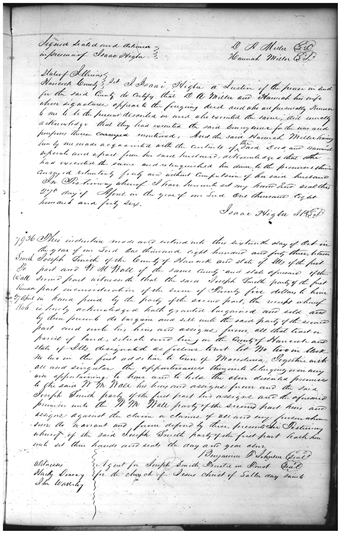 Signed sealed and delivered
in presence of Isaac Higbee
D. A. Miller Seal
Hannah Miller Seal
State of Illinois
Hancock County Sct. I Isaac Higbee a Justice of the peace in and
for the said County do certify that D. A. Miller and Hannah his wife
whose signatures appears to the foregoing deed and who are personally known
to me to be the persons described in and who executed the same, did severally
acknowledge that they had executed the said conveyance for the uses and
purposes therein mentioned, And the said Hannah Miller having
been by me made acquainted with the contents of said Deed and examined
separate and apart from her said husband, acknowledged that she
had executed the same and relinquished her dower to the premises therein
conveyed voluntarily freely and without compulsion of her said husband
In Testimony whereof I have hereunto set my hand and seal this
day of in the year of our Lord One thousand eight
hundred and forty six.
Isaac Higbee J.P. Seal
7936 This indenture made and entered into this sixteenth day of in
the year of our Lord One thousand eight hundred and forty three, between
Joseph Smith of the County of Hancock and State of Ill. of the first
part and W. W. Wall of the same County and state aforesaid of the
second part witnesseth that the said Joseph Smith party of the first
part in consideration of the sum of Twenty five dollars to him
in hand paid by the party of the second part, the receipt whereof
is hereby acknowledged hath granted bargained and sold and
by these presents do bargain and sell unto the said party of the second
part and unto his heirs and assigns forever all that tract or
parcel of land, situate and being in the County of Hancock and
State of Ills. designated as follows to wit Lot No. in Block
No. in the first addition to town of Macedonia, Together with
all and singular the appurtenances thereunto belonging or in any
wise appertaining to have and to hold the above described premises
to the said W. W. Wall his heirs and assigns forever and the said
Joseph Smith party of the first part his assigns and the aforesaid
premises unto the W. W. Wall party of the second part heirs and
assigns against the claim or claims of all and every person whom
soever do warrant and forever defend by these presents In Testimony
whereof the said Joseph Smith party of the first part hath here
unto set their hands and seals the day and year above
Benjamin F. Johnson Seal
Witnesses Agent for Joseph Smith Trustee in Trust Seal
for the church of Jesus Christ of Latter day Saints